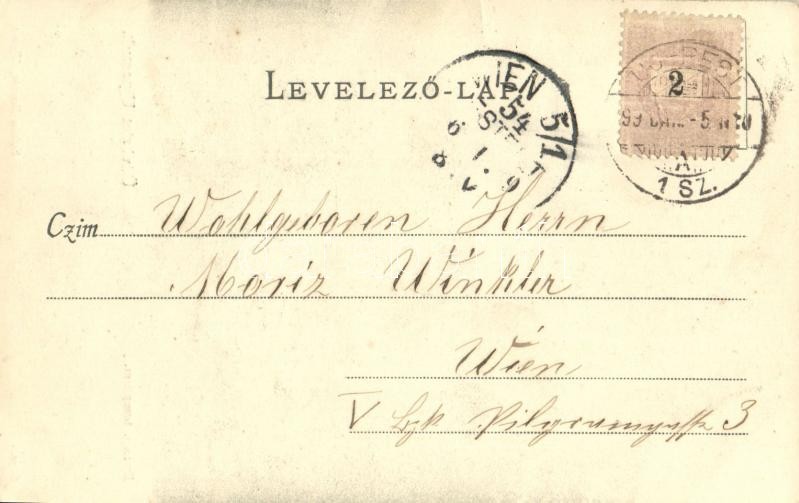 LEVELEZŐ-LAP
WIEN 5/1
54
2
1 SZ.
Czim Wohlgeboren Herrn
Moriz Winkler
Wien
V Bzk Pilgramgasse 3